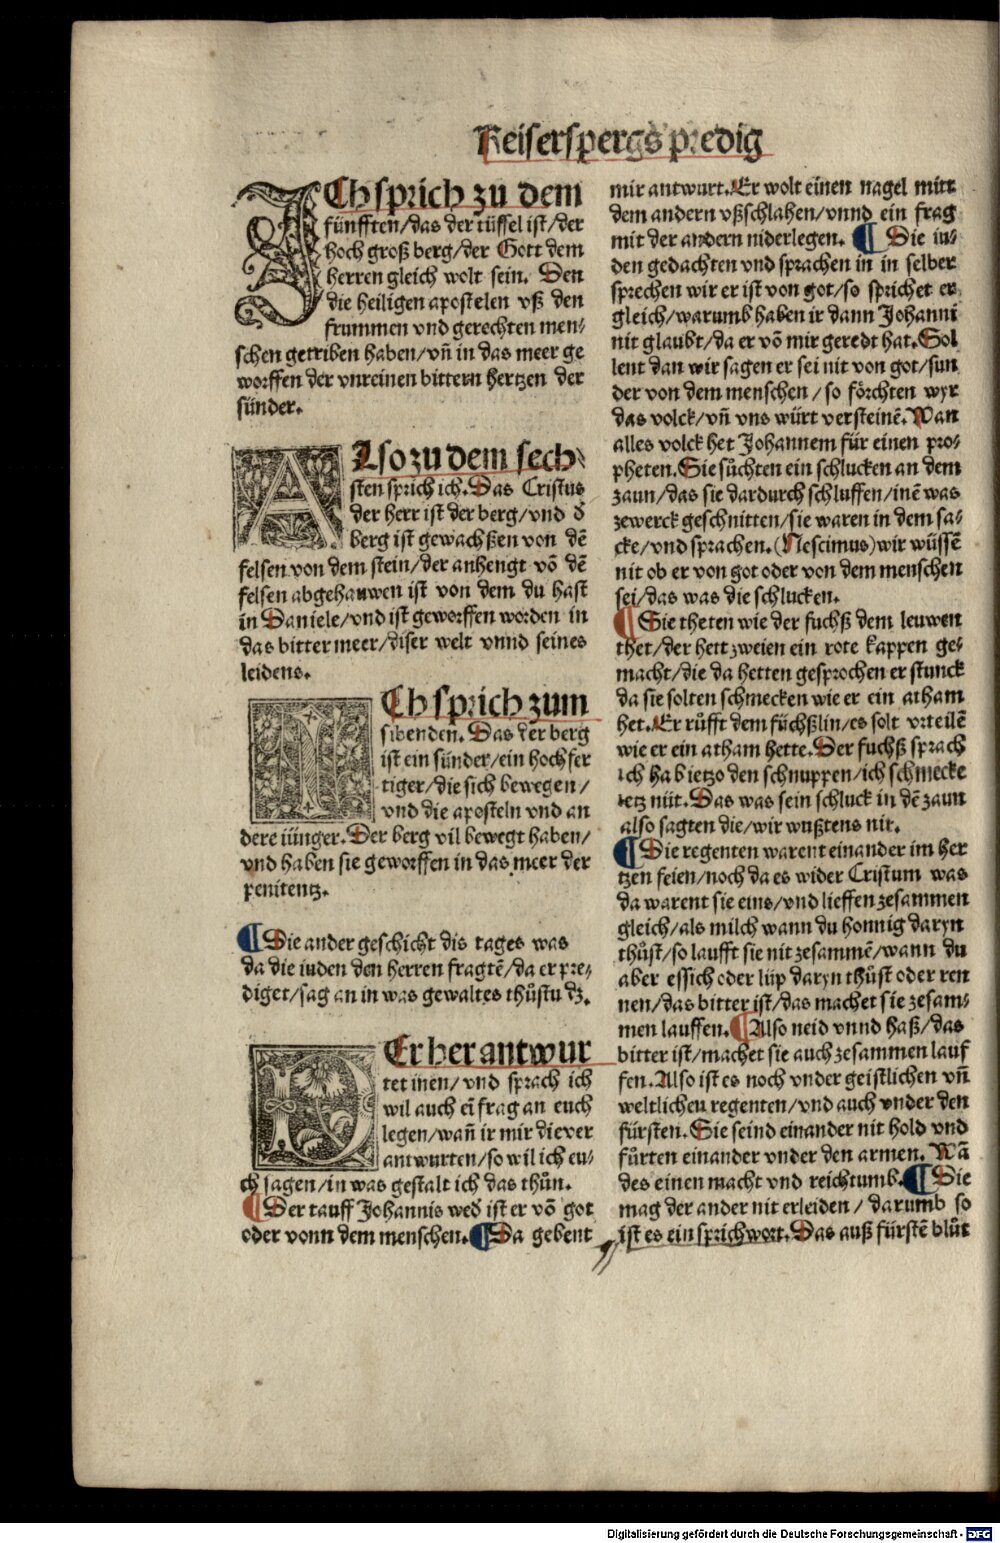 Keiserspergs predig
ICh sprich zu dem
fünfften/das der tüffel ist/der
hoch groß berg/der Gott dem
herren gleich wolt sein. Den
die heiligen apostelen vß den
frummen vnd gerechten men⸗
schen getriben haben/vn̄ in das meer ge
worffen der vnreinen bittern hertzen der
sünder.
ALso zu dem sech⸗
sten sprich ich. Das Cristus
der herr ist der berg/vnd d̄
berg ist gewachßen von dē
felsen von dem stein/der anhengt vō dē
felsen abgehauwen ist von dem du hast
in Daniele/vnd ist geworffen worden in
das bitter meer/diser welt vnnd seines
leidens.
ICh sprich zum
sibenden. Das der berg
ist ein sünder/ein hochfer
tiger/die sich bewegen/
vnd die aposteln vnd an
dere iünger. Der berg vil bewegt haben/
vnd haben sie geworffen in das meer der
penitentz.
¶ Die ander geschicht dis tages was
da die iuden den herren fragtē/da er pre⸗
diget/sag an in was gewaltes thůstu dz.
DEr her antwur
tet inen/vnd sprach ich
wil auch ei̅ frag an euch
legen/wan̄ ir mir die ver
antwurten/so wil ich eu⸗
ch sagen/in was gestalt ich das thůn.
¶ Der tauff Johannis wed̄ ist er vō got
oder vonn dem menschen. ¶ Da gebent
mir antwurt. Er wolt einen nagel mitt
dem andern vßschlahen/vnnd ein frag
mit der andern niderlegen. ¶ Die iu⸗
den gedachten vnd sprachen in in selber
sprechen wir er ist von got/so sprichet er
gleich/warumb haben ir dann Johanni
nit glaubt/da er vō mir geredt hat. Sol
lent dan wir sagen er sei nit von got/sun
der von dem menschen/so förchten wyr
das volck/vn̄ vns würt versteinē. Wan
alles volck het Johannem für einen pro⸗
pheten. Sie sůchten ein schlucken an dem
zaun/das sie dardurch schluffen/inē was
zewerck geschnitten/sie waren in dem sa⸗
cke/vnd sprachen. (Nescimus) wir wüssē
nit ob er von got oder von dem menschen
sei/das was die schlucken.
¶ Sie theten wie der fuchß dem leuwen
thet/der hett zweien ein rote kappen ge⸗
macht/die da hetten gesprochen er stunck
da sie solten schmecken wie er ein atham
het. Er růfft dem füchßlin/es solt vrteilē
wie er ein atham hette. Der fuchß sprach
ich hab ietzo den schnuppen/ich schmecke
ietz nüt. Das was sein schluck in dē zaun
also sagten die/wir wußtens nit.
¶ Die regenten warent einander im her
tzen feien/noch da es wider Cristum was
da warent sie eins/vnd lieffen zesammen
gleich/als milch wann du honnig daryn
thůst/so laufft sie nit zesammē/wann du
aber essich oder lüp daryn thůst oder ren
nen/das bitter ist/das machet sie zesam⸗
men lauffen. ¶ Also neid vnnd haß/das
bitter ist/machet sie auch zesammen lauf
fen. Also ist es noch vnder geistlichen vn̄
weltlichen regenten/vnd auch vnder den
fürsten. Sie seind einander nit hold vnd
fürten einander vnder den armen. Wā
des einen macht vnd reichtumb. ¶ Die
mag der ander nit erleiden/darumb so
ist es ein sprichwort. Das auß fürstē blůt
Digitalisierung gefördert durch die Deutsche Forschungsgemeinschaft - DFG